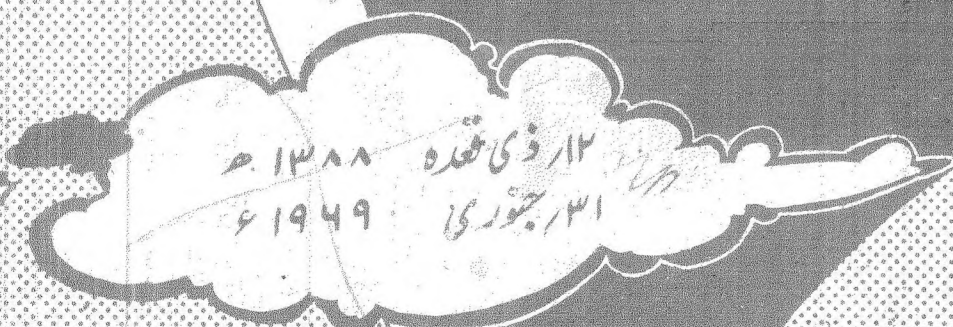 ۱۲؍ ذی قعدہ ۱۳۸۸ ھ
۳۱؍ جنوری ۱۹۶۹ ء